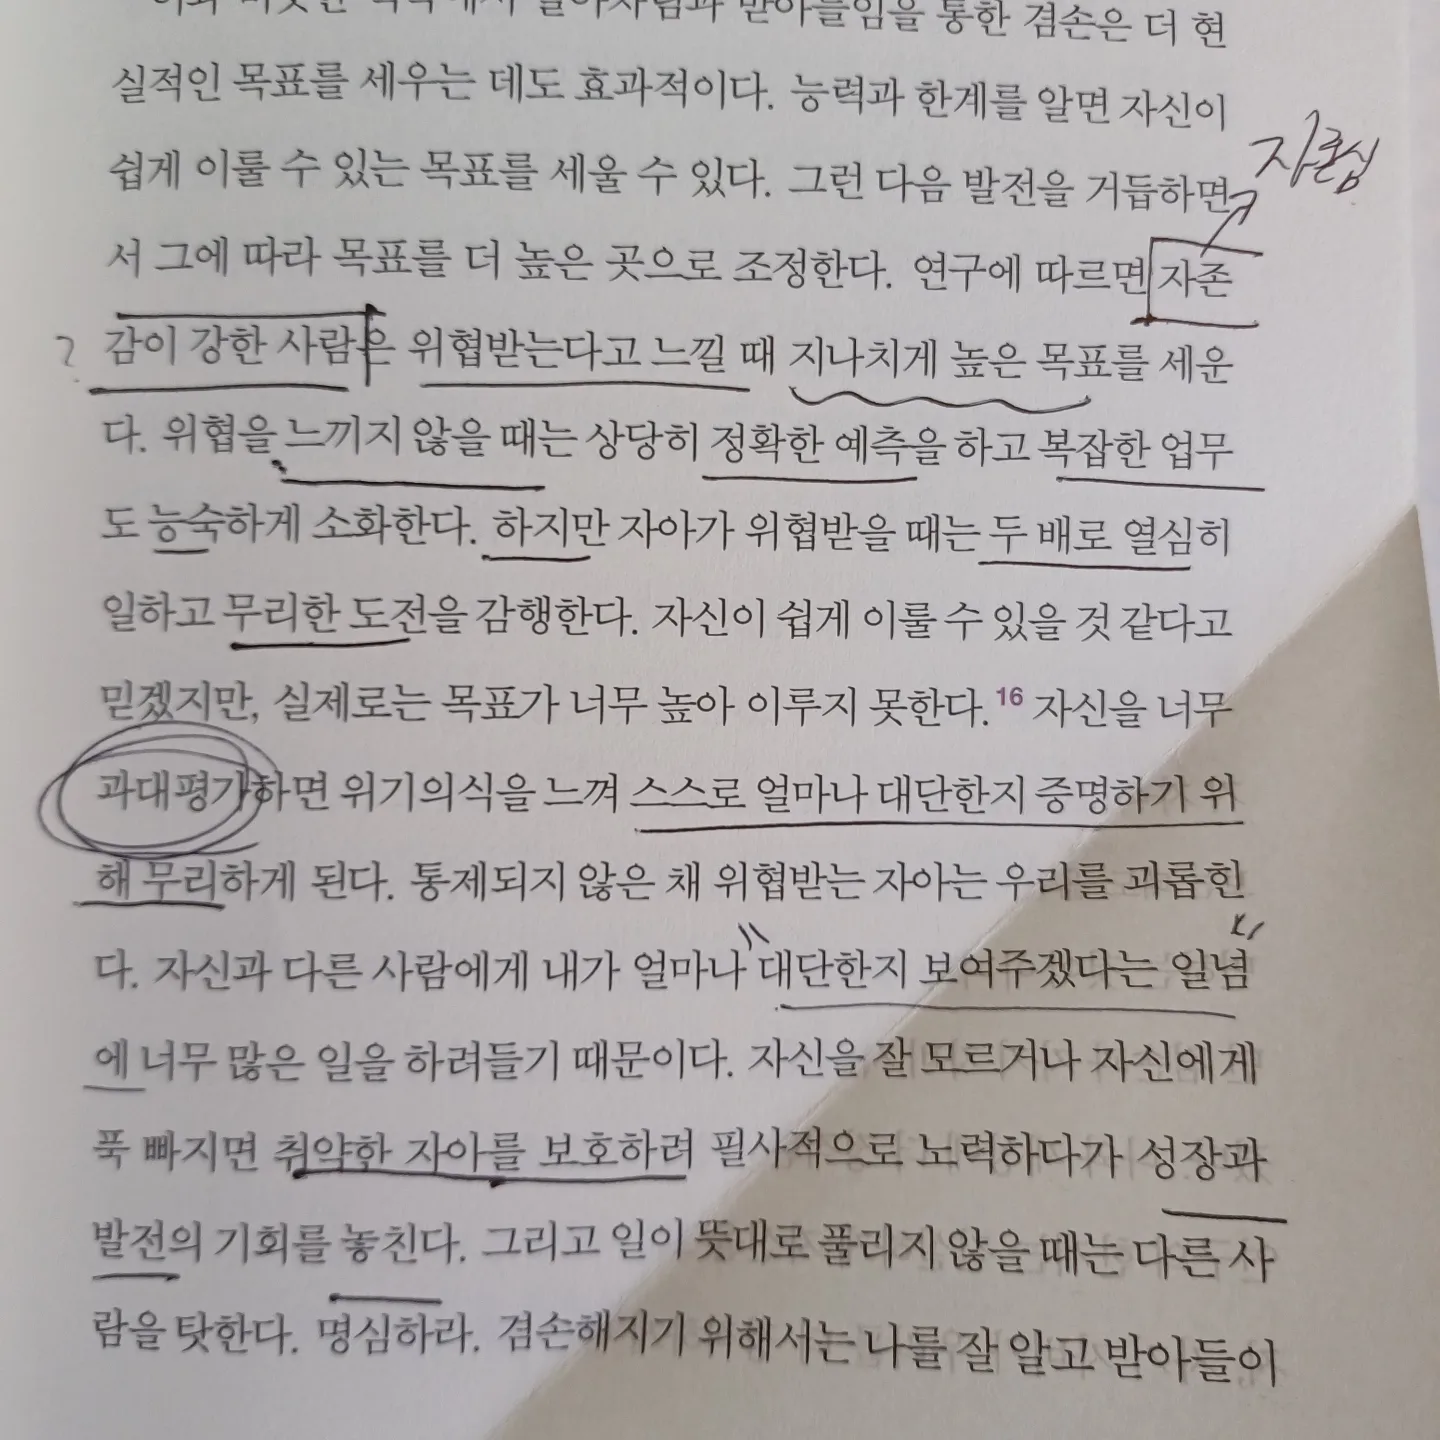 통한 겸손은 더 현
실적인 목표를 세우는 데도 효과적이다. 능력과 한계를 알면 자신이
자존심
쉽게 이룰 수 있는 목표를 세울 수 있다. 그런 다음 발전을 거듭하면
서 그에 따라 목표를 더 높은 곳으로 조정한다. 연구에 따르면 자존
? 감이 강한 사람은 위협받는다고 느낄 때 지나치게 높은 목표를 세운
다. 위협을 느끼지 않을 때는 상당히 정확한 예측을 하고 복잡한 업무
도 능숙하게 소화한다. 하지만 자아가 위협받을 때는 두 배로 열심히
일하고 무리한 도전을 감행한다. 자신이 쉽게 이룰 수 있을 것 같다고
믿겠지만, 실제로는 목표가 너무 높아 이루지 못한다.16 자신을 너무
과대평가하면 위기의식을 느껴 스스로 얼마나 대단한지 증명하기 위
해 무리하게 된다. 통제되지 않은 채 위협받는 자아는 우리를 괴롭힌
다. 자신과 다른 사람에게 내가 얼마나 대단한지 보여주겠다는 일념
에 너무 많은 일을 하려들기 때문이다. 자신을 잘 모르거나 자신에게
푹 빠지면 취약한 자아를 보호하려 필사적으로 노력하다가 성장과
발전의 기회를 놓친다. 그리고 일이 뜻대로 풀리지 않을 때는 다른 사
람을 탓한다. 명심하라. 겸손해지기 위해서는 나를 잘 알고 받아들이